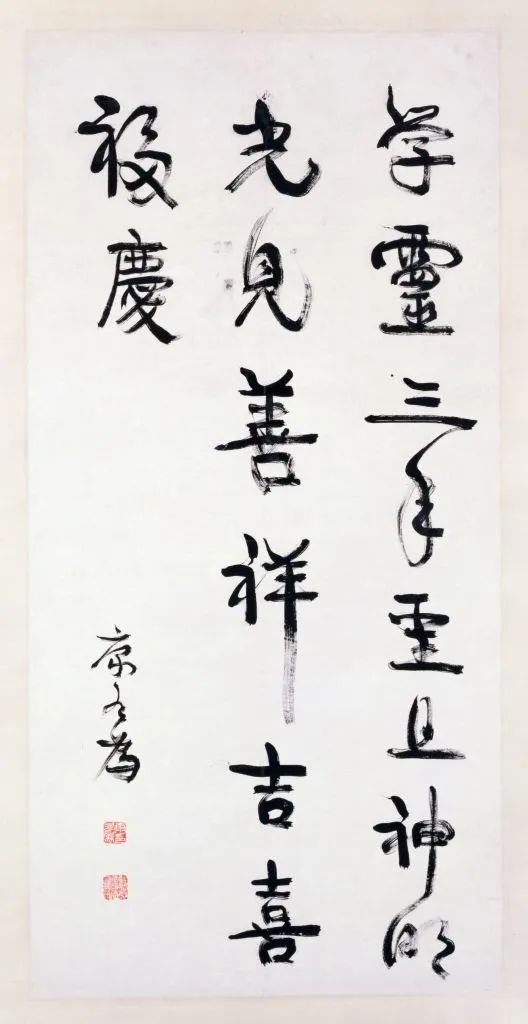 學靈三年聖且神明
先見善祥吉喜
福慶
康有為